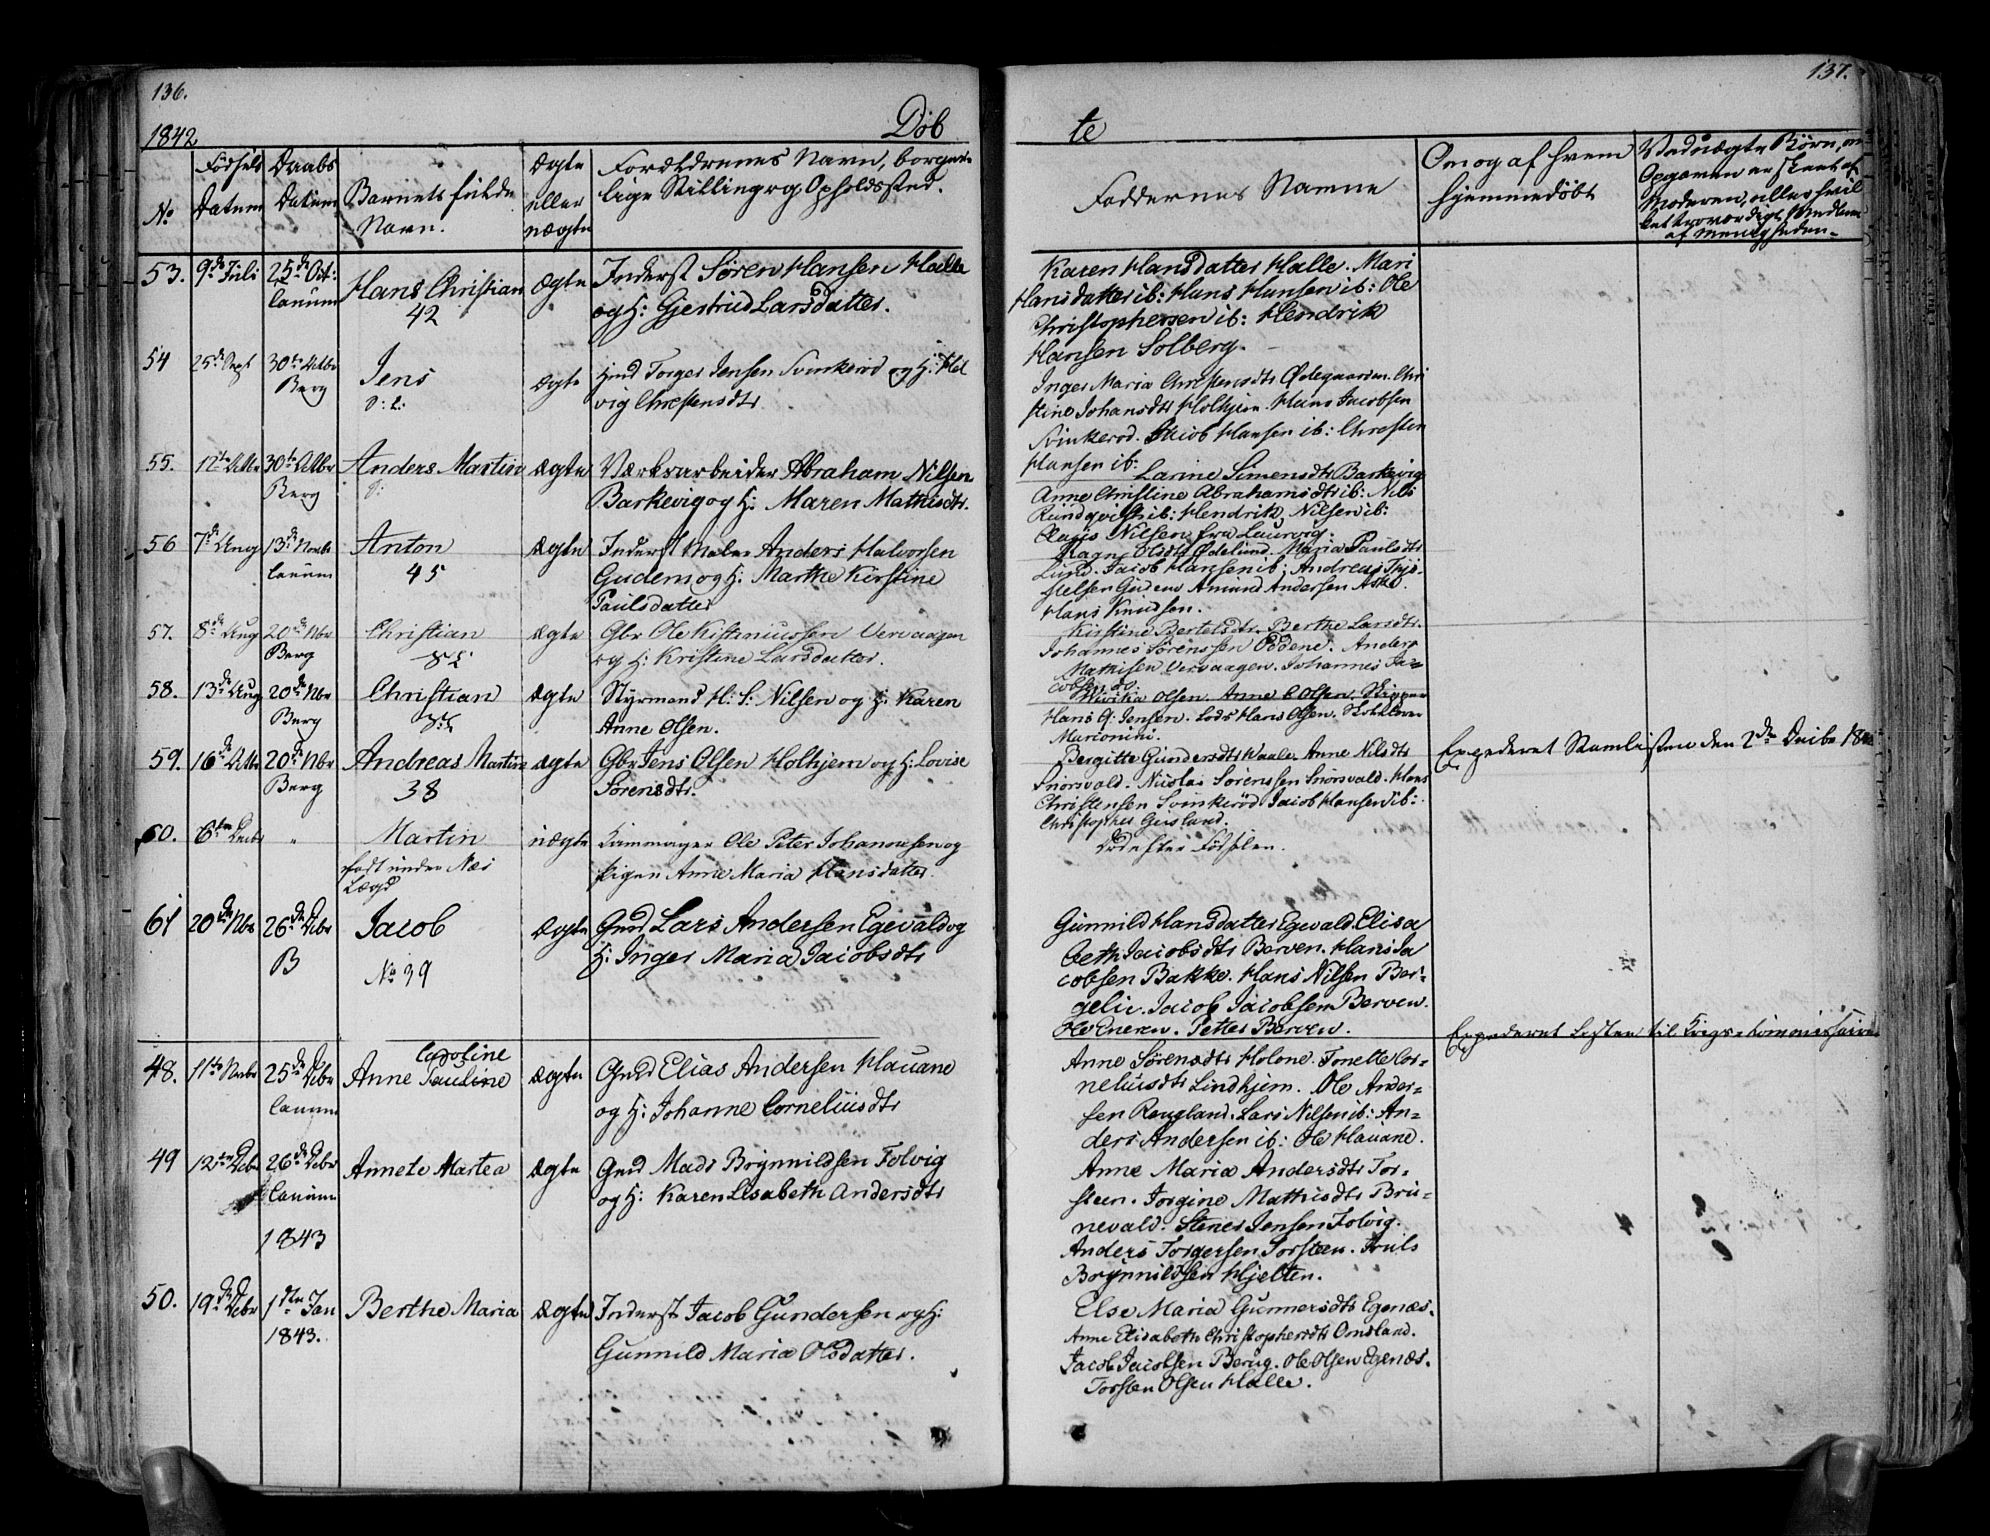 136.
1842
Døb
No
Fødsels
Datum
Daabs
Datum
Barnets fulde
Navn.
Ægte
eller
uægte
Forældrenes Navn, borger-
lige Stilling og Opholdssted.
53.
9de Juli
25de Oct:
Lauum
Hans Christian
42
Ægte
Inderst Søren Hansen Halle
og H: Gjertrud Larsdatter.
54
25de Sept
30te Octbr
Berg
Jens
Ægte
Gmd Torger Jensen Svinkerød og H: Hel
vig Christensdtr
55.
12te Octbr
30te Octbr
Berg
Anders Martin
Ægte
Værksarbeider Abraham Nilsen
Barkevig og H: Maren Mathisdtr.
56
7de Aug
13de Novbr
Lauum
Anton
45
Ægte
Inderst Maler Anders Halvorsen
Gudem og H: Marthe Kirstine
Paulsdatter
57.
8de Aug
20de Nbr
Berg
Christian
Ægte
Gbr Ole Vervaagen
og H: Kristine Larsdatter.
58.
13de Aug
20de Nbr
Berg
Christian
Ægte
Styrmand H: S: Nilsen og H: Karen
Anne Olsen.
59.
16de Octbr
20de Nbr
Berg
Andreas Martin
38
Ægte
Gbr Jens Olsen Holhjem og H: Lovise
Sørensdtr.
60.
6te Decbr
"
Martin
født under Næs
Lægd
uægte
Ole Peter Johannesen og
Pigen Anne Maria Hansdatter
61
20de Nbr
26de Decbr
B
Jacob
No 39
Ægte
Gmd Lars Andersen Egevald og
H: Inger Maria Jacobsdtr
48.
11te Novbr
25de Decbr
Lauum
Caroline
Anne Pauline
Ægte
Gmd Elias Andersen Havane
og H: Johanne Corneliusdtr
49
12te Decbr
26de Decbr
Lauum
Annete Martea
Ægte
Gmd Mads Brynnildsen Folvig
og H: Karen Lisabeth Andersdtr
1843
50.
19de Decbr
1ste Jan
1843.
Berthe Maria
Ægte
Inderst Jacob Gundersen og H:
Gunnild Maria Olsdatter.
137.
te
Faddernes Navne
Om og af hvem
hjemmedøbt
Ved uægte Børn, om
Opgaven er skeet af
Moderen, eller hvil
ket troværdigt Medlem
af Menigheden.
Karen Hansdatter Halle. Mari
Hansdatter ib: Hans Hansen ib: Ole
Christophersen ib: Hendrik
Hansen Solberg.
Inger Maria Christensdtr Ødegaarden. Chri
stine Johansdtr Holhjem. Hans Jacobsen
Svinkerød. Jacob Hansen ib: Christen
Hansen ib:
Larine Simensdtr Barkevig
Anne Christine Abrahamsdtr ib: Nils
Rundqvist ib: Hendrik Nilsen ib:
Claus Nilsen fra Laurvig:
Ragn: Olsdtr Ødelund. Maria Paulsdtr
Lund. Jacob Hansen ib: Andreas
Gudem Amund Andersen Aske.
Hans Knudsen.
Kirstine Bertelsdtr. Berthe Larsdtr.
Johannes Sørensen Oddene. Anders
Mathisen Vervaagen. Johannes Ja-
cobsen
Marika Olsen. Anne C Olsen. Skipper
Hans G: Jensen. Lods Hans Olsen. Skolelærer
Marionini.
Bergitte Gundersdtr Waale. Anne Nilsdtr
Snørsvald. Nicolai Sørensen Snørsvald. Hans
Christensen Svinkerød Jacob Hansen ib:
Christopher Guisland.
Expederet Stamlisten den 2de Decbr 18
Død efter Fødselen.
Gunnild Hansdatter Egevald. Elisa
beth Jacobsdtr Berven. Hans Ja
cobsen Bakke. Hans Nilsen Ber-
gelie. Jacob Jacobsen Berven.
Ole Eneren. Petter Berven.
Expederet Listen til Krigs-Commissairen
Anne Sørensdtr Holone. Tonette Cor-
neliusdtr Lindhjem. Ole Ander-
sen Røugland. Lars Nilsen ib: An-
ders Andersen ib: Ole Havane.
Anne Maria Andersdtr Tor-
steen. Jorgine Mathisdtr Bru-
nevald. Stener Jensen Folvig.
Anders Torgersen Torsteen. Truls
Brynnildsen Hjelten.
Else Maria Gunnersdtr Egenæs.
Anne Elisabeth Christophersdtr Omsland.
Jacob Jacobsen Berug. Ole Olsen Egenæs.
Torsten Olsen Halle.